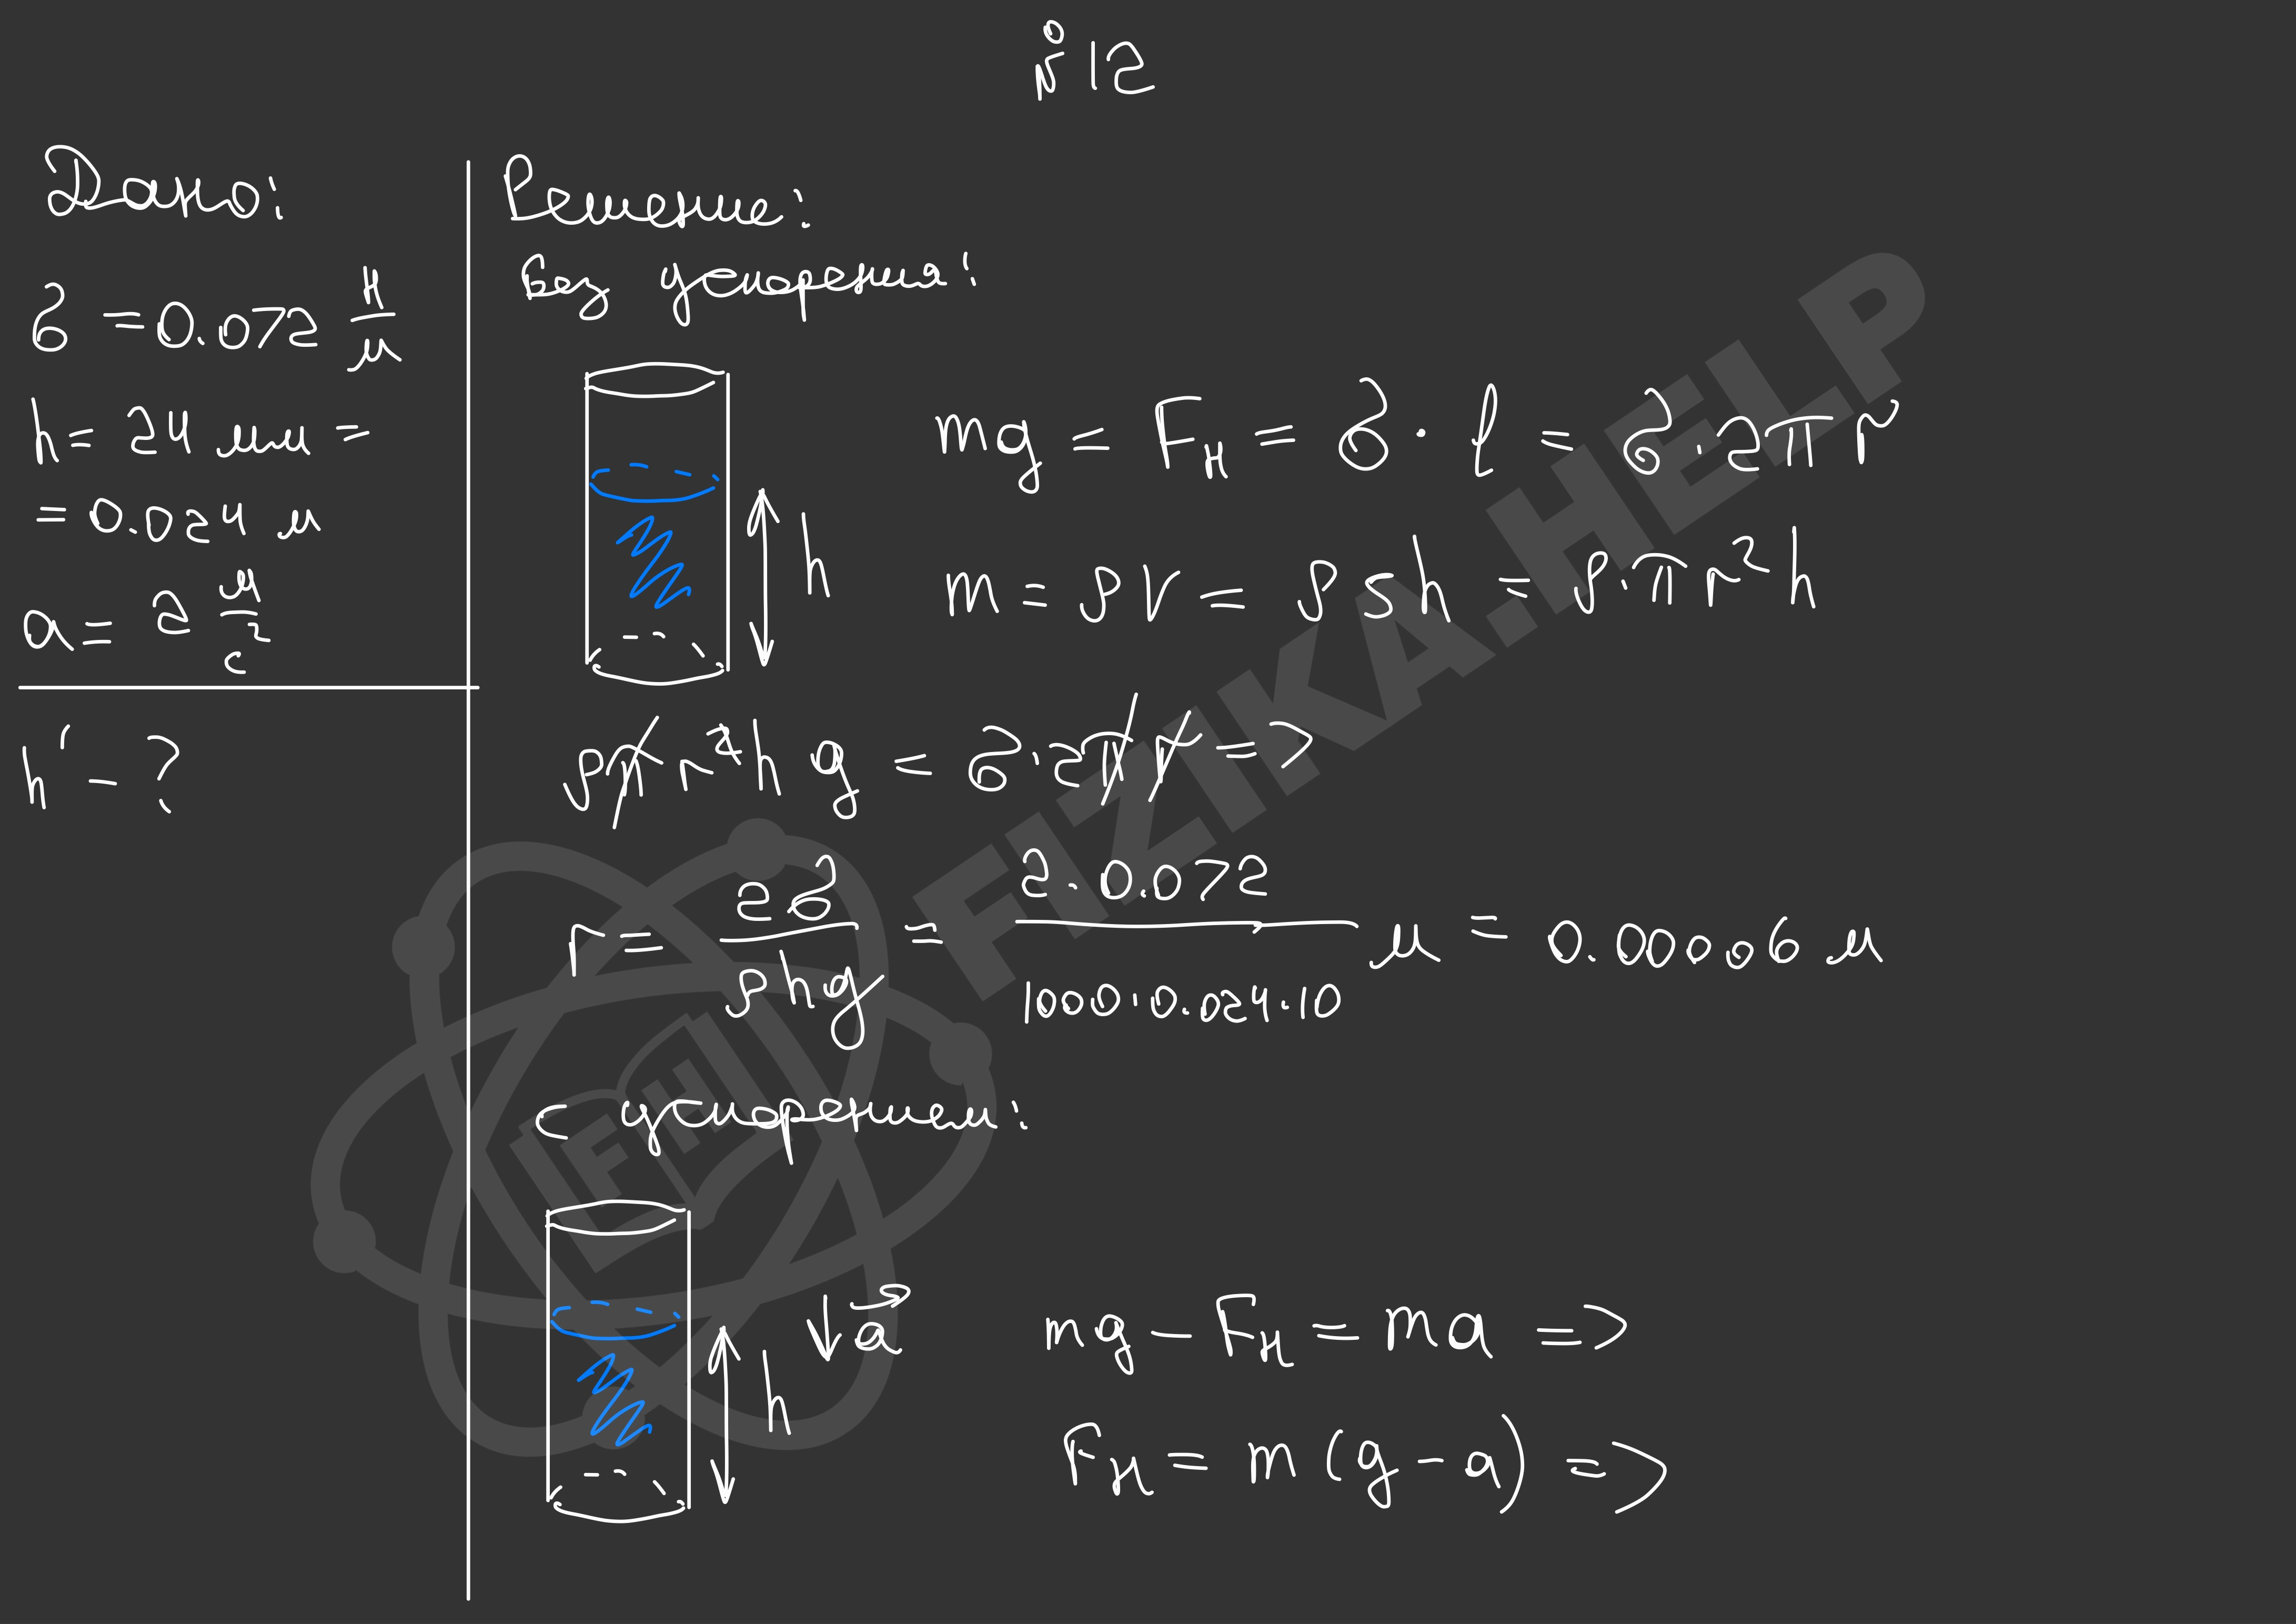 №12
Дано:
σ = 0.072 Н/м
h = 24 мм =
= 0.024 м
a = 2 м/с²
h' - ?
Решение:
Без ускорения:
mg = Fн = σ · l = σ · 2πr
h
m = ρV = ρSh = ρ · πr²h
ρπr²hg = σ · 2πr =>
r = 2σ/ρhg = 2 · 0.072/1000 · 0.024 · 10 м = 0.0006 м
С ускорением:
h
a
mg - Fн = ma =>
Fн = m(g - a) =>
FIZIKA.HELP